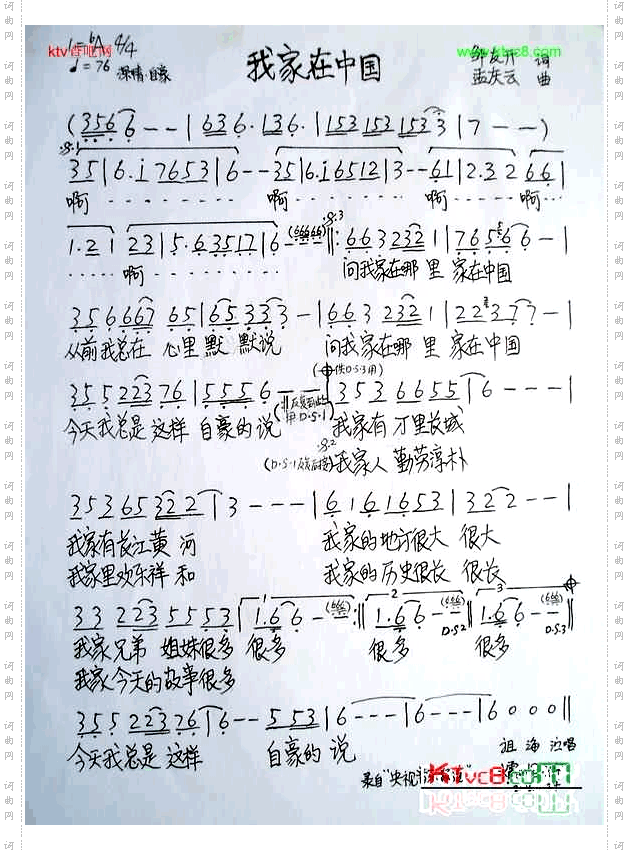 ktv香吧网
www.ktvc8.com
1=ᵇA 4/4
♩=76 深情.自豪
我家在中国
邹友开 词
孟庆云 曲
(356 6 - - | 636. 136. | 153 153 153 3 | 7 - - )
35 | 6.i 7653 | 6 - - 35 | 6.i 6512 | 3 - - 61 | 2.32 66 |
啊 啊 啊 啊
1.21 23 | 5.63517 | 6 - 663 2321 | 76566 - |
啊 问我家在哪里 家在中国
356667 65 | 65333 - | 663 2321 | 22377 - |
从前我总在 心里默默说 问我家在哪里 家在中国
355223 76 | 5556 - 353 6655 | 6 - - - |
(供D.S.3用)
今天我总是这样 自豪的说 我家有 万里长城
(D.S.1反复后接) 我家人 勤劳淳朴
353 65322 | 3 - - - | 616 1653 | 322 - - - |
我家有长江黄河 我家的地方很大 很大
我家里欢乐祥和 我家的历史很长 很长
33 223 5553 | 1.66 - :| 1.66 - | 1.66 - ||
D.S.2 D.S.3
我家兄弟姐妹很多 很多 很多 很多
我家今天的故事很多
355223 76 | 6 - - 553 | 6 - - - | 6 - - - | 6000 ||
今天我总是这样 自豪的 说
祖海 演唱
KTvc8.com
词曲网